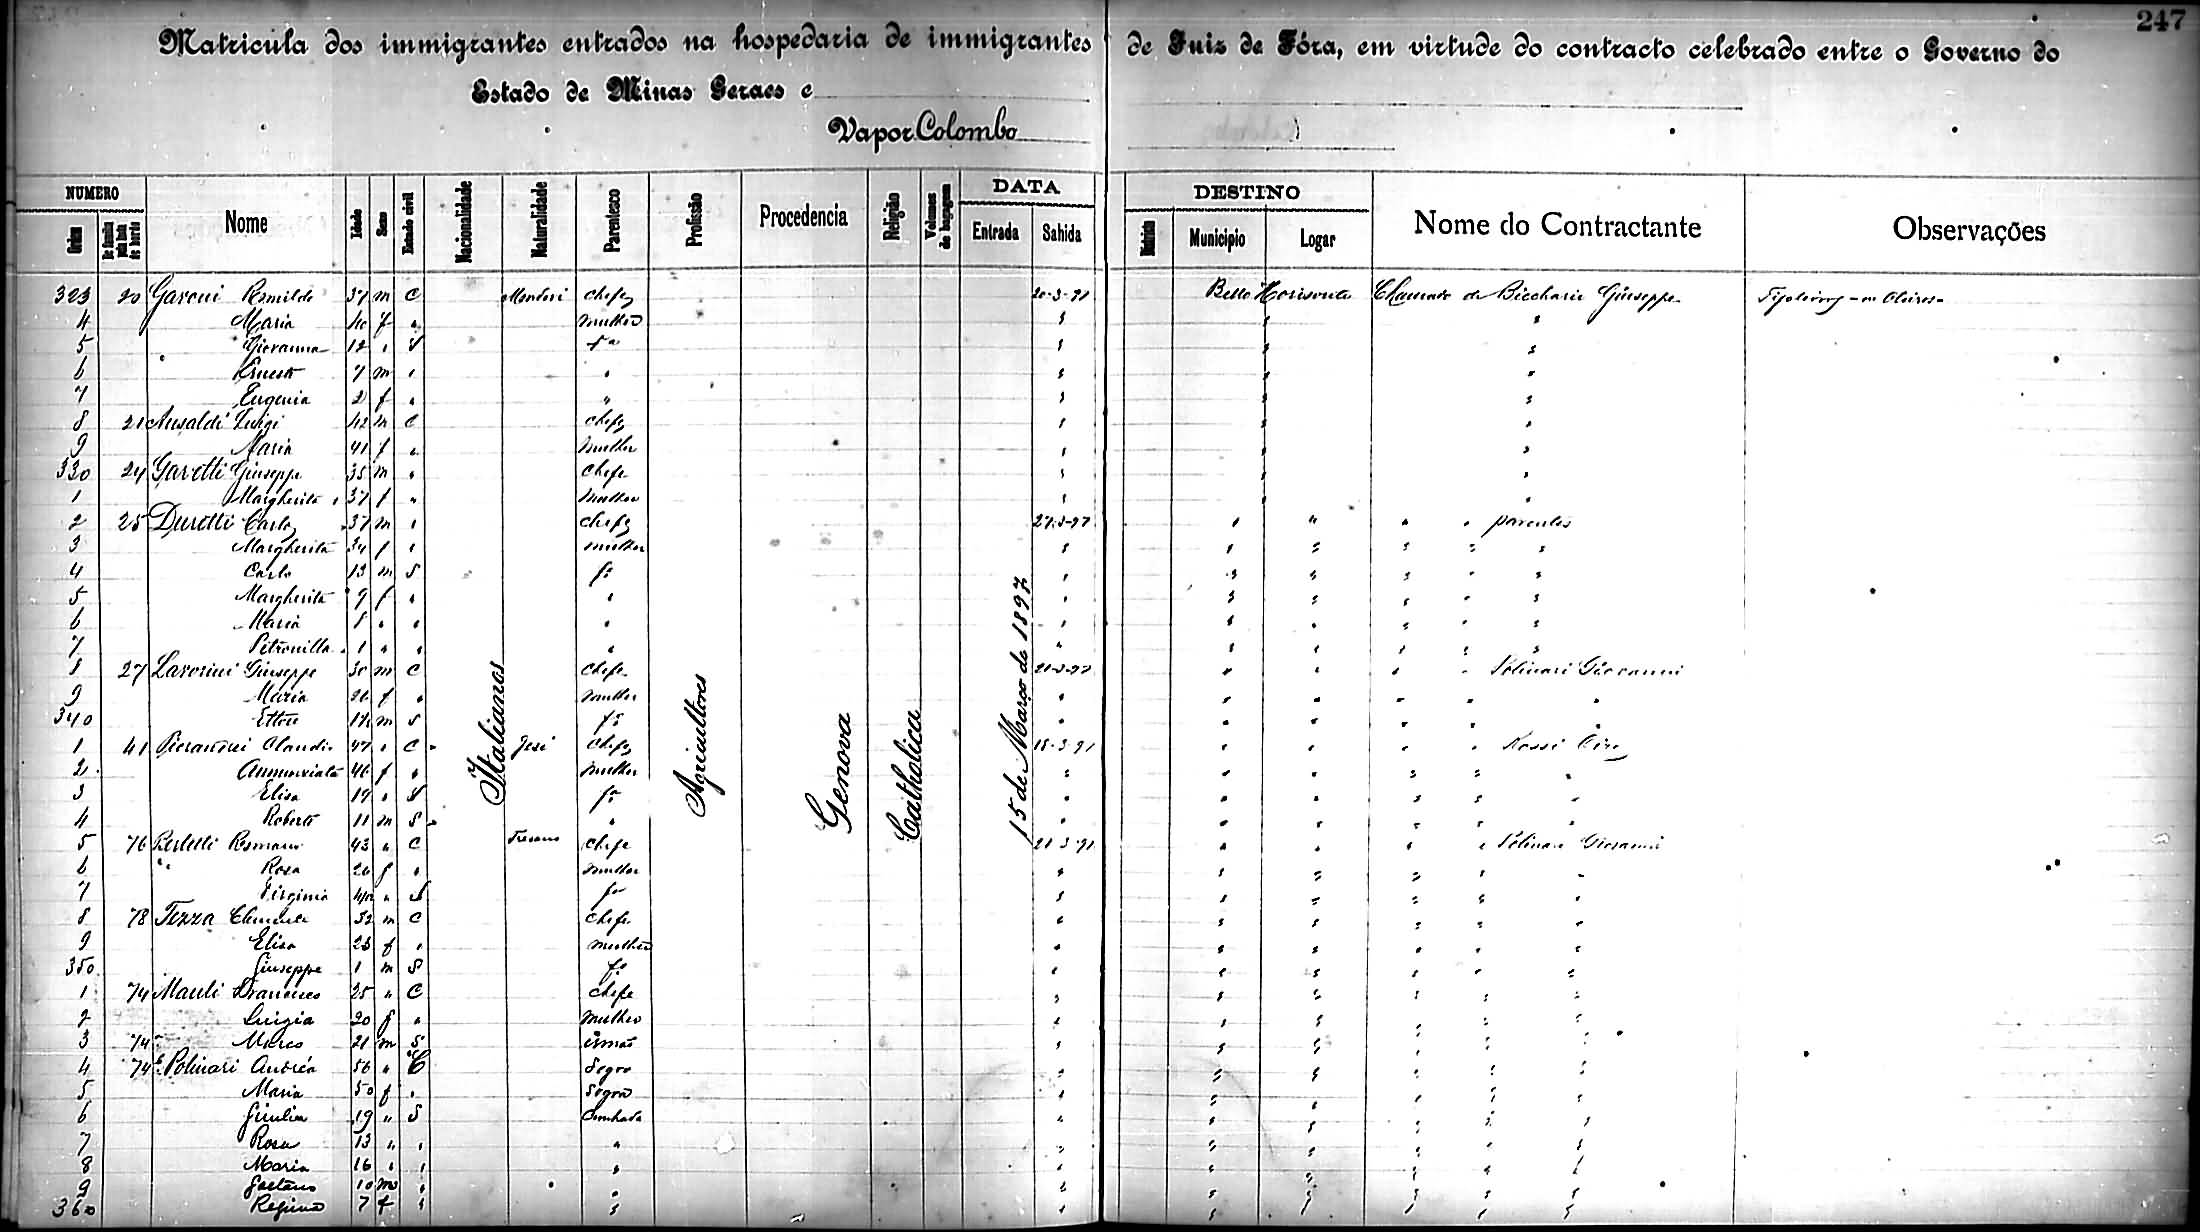 247
Matricula dos immigrantes entrados na hospedaria de immigrantes de Juiz de Fóra, em virtude do contracto celebrado entre o Governo do
Estado de Minas Geraes e
Vapor Colombo
NUMERO Nome Idade Sexo Estado civil Nacionalidade Naturalidade Parentesco Profissão Procedencia Religião Volumes de bagagem DATA DESTINO Nome do Contractante Observações
Ordem De familia pela lista de bordo Entrada Sahida Districto Municipio Logar
Italianos
Agricultores
Genova
Catholica
15 de Março de 1897
323 20 Garoni Romildo 37 m C chefe 20-3-97 Bello Horisonte Chamado de Giuseppe
4 Maria 40 f " mulher "
5 Giovanna 12 " S fa "
6 Ernesto 7 m " " "
7 Eugenia 2 f " " "
8 21 Ansaldi Luigi 42 m C chefe "
9 Maria 41 f " mulher "
330 24 Garetti Giuseppe 35 m " chefe "
1 Margherita 37 f " mulher "
2 25 Duretti Carlo 37 m " chefe 27-3-97 " " " " parentes
3 Margherita 34 f " mulher " " " " " "
4 Carlo 13 m S fo " " " " " "
5 Margherita 9 f " " " " " " " "
6 Maria 8 " " " " " " " " "
7 Petronilla 1 " " " " " " " " "
8 27 Lavorini Giuseppe 30 m C chefe " " " " Polinari Giovanni
9 Maria 26 f " mulher " " " " " "
340 Ettore m S fo " " " " " "
1 41 Pierandrei Claudio 47 " C Jesi chefe 18-3-97 " " " " Rossi
2 Annunziata 46 f " mulher " " " " " "
3 Elisa 19 " S fa " " " " " "
4 Roberto 11 m S " " " " " " "
5 76 Perletti Romano 43 " C chefe 21-3-97 " " " " Polinari Giovanni
6 " Rosa 26 f " mulher " " " " " "
7 Virginia " S fa " " " " " "
8 78 Tezza Clemente 32 m C chefe " " " " " "
9 Elisa 23 f " mulher " " " " " "
350 Giuseppe 1 m S fo " " " " " "
1 74 Mauli Francesco 25 " C chefe " " " " " "
2 Luigia 20 f " mulher " " " " " "
3 74 Marco 21 m S irmão " " " " " "
4 74 Polinari Andréa 56 " C Sogro " " " " " "
5 Maria 50 f " Sogra " " " " " "
6 Giulia 19 " S Cunhada " " " " " "
7 Rosa 13 " " " " " " " " "
8 Maria 16 " " " " " " " " "
9 Gaetano 10 m " " " " " " " "
360 Regina 7 f " " " " " " " "